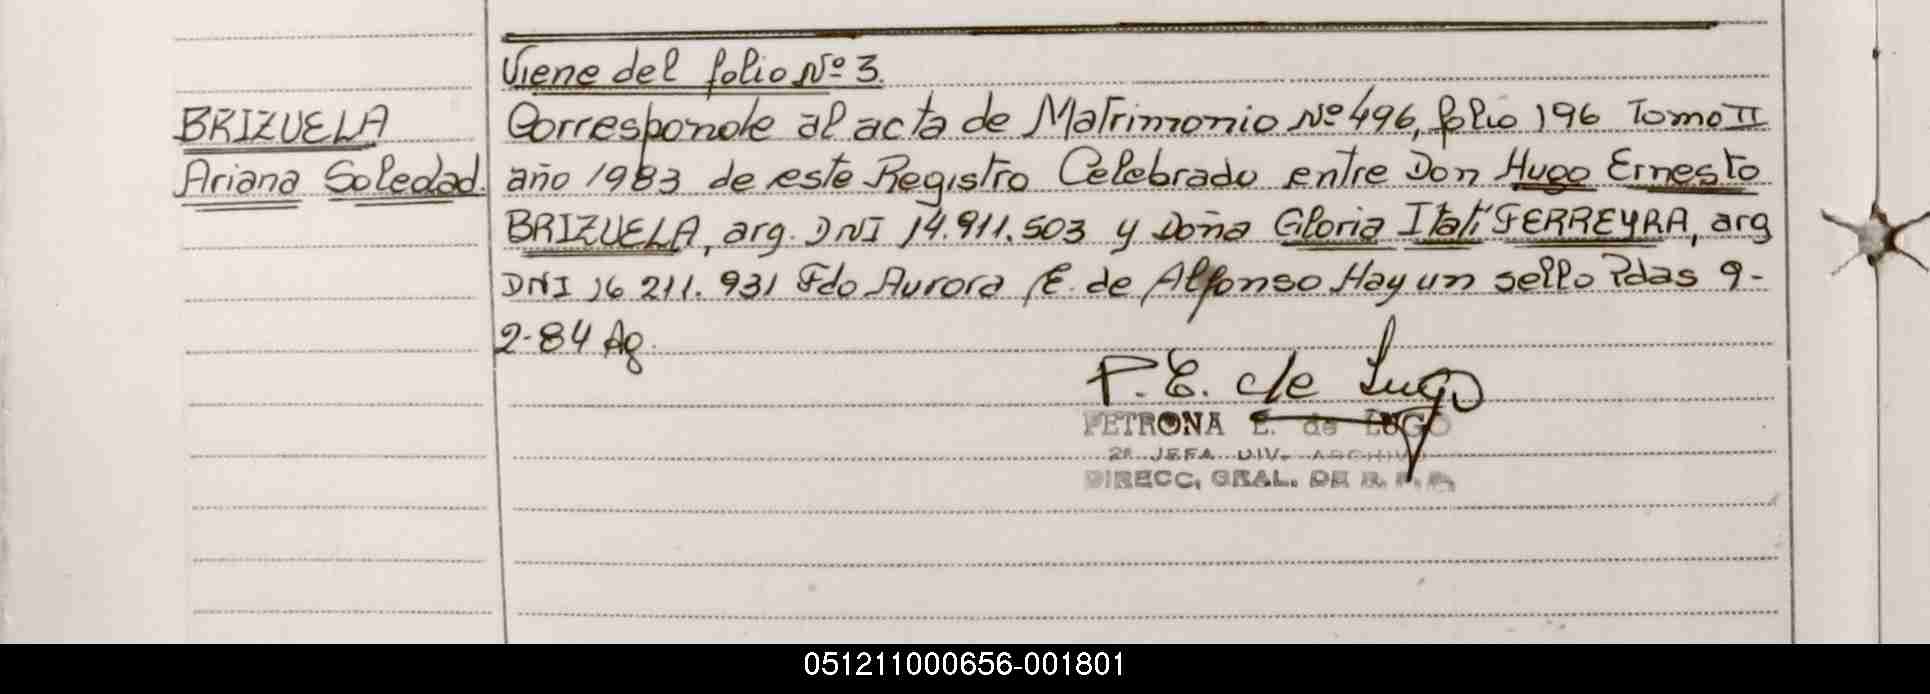 Viene del folio Nº 3.
BRIZUELA
Ariana Soledad.
Corresponde al acta de Matrimonio Nº 496, folio 196 Tomo II
año 1983 de este Registro Celebrado entre Don Hugo Ernesto
BRIZUELA, arg. DNI 14.911.503 y Doña Gloria Itatí FERREYRA, arg
DNI 16 211.931 Fdo Aurora E. de Alfonso Hay un sello Pdas 9-
2-84 Ag.
P. E. de Lugo
PETRONA E. de LUGO
2ª JEFA DIV. ARCHIVO
DIRECC. GRAL. DE R.
051211000656-001801